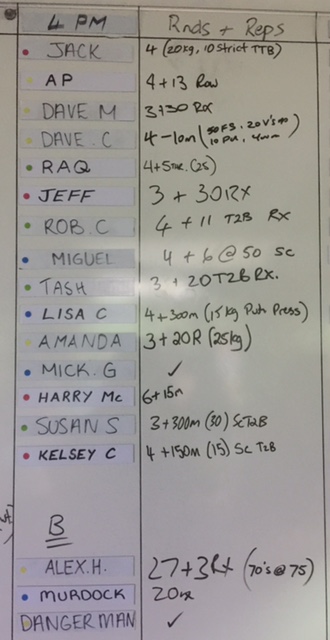 4 PM Rnds + Reps
JACK 4 (20kg, 10 strict TTB)
AP 4+13 Row
DAVE M 3+30 RX
DAVE. C 4-10m (50FS, 20V's
RAQ 4+5 (25)
JEFF 3 + 30 RX
ROB. C 4 + 11 T2B RX
MIGUEL 4 + 6 @ 50 SC
TASH 3 + 20T2B RX.
LISA C 4+300m (15kg Push Press)
AMANDA 3+20R (25kg)
MICK. G ✓
HARRY Mc 6+15m
SUSAN S 3+300m (30) ScT2B
KELSEY C 4+150m (15) Sc T2B
B
ALEX.H. 27+3Rx (70's @ 75)
MURDOCK 20rx
DANGERMAN ✓